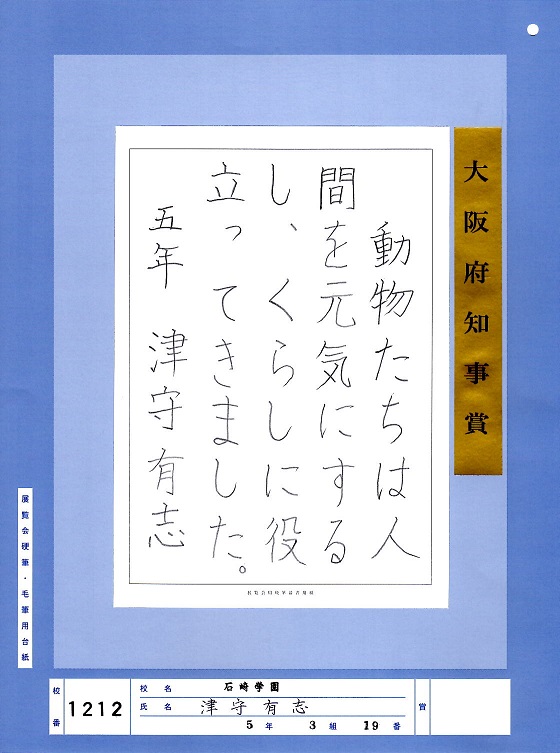 大阪府知事賞
動物たちは人
間を元気にする
し、くらしに役
立ってきました。
五年 津守有志
展覧会硬筆・毛筆用台紙
校番 1212
校名 石崎学園
氏名 津守有志
5年 3組 19番
賞